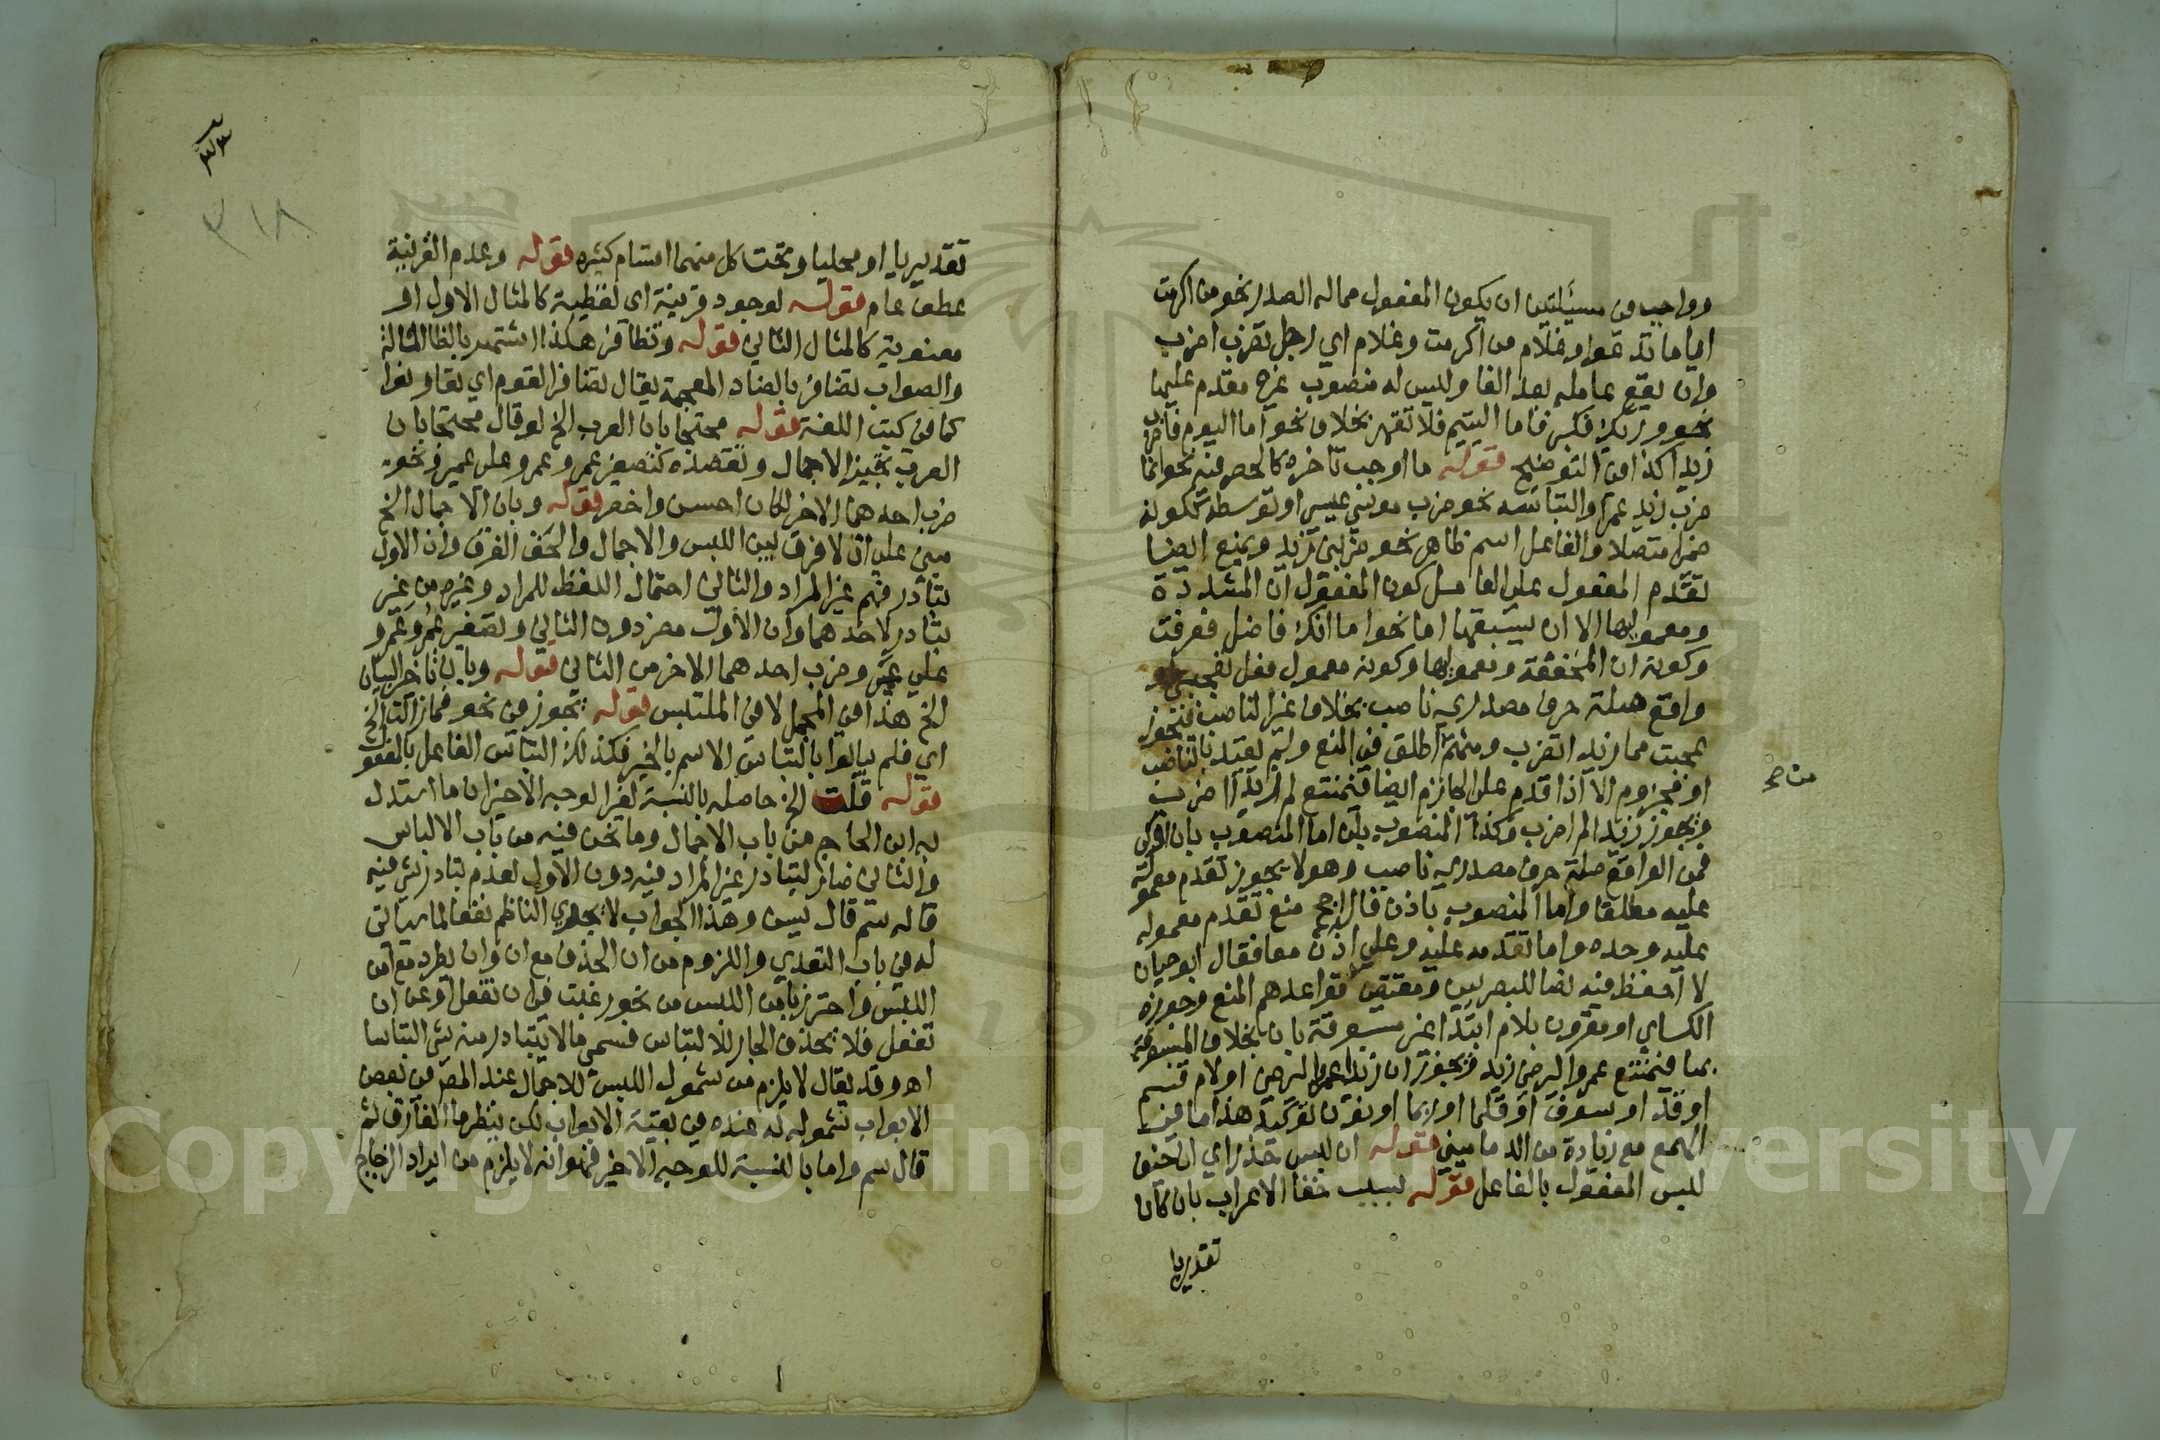 وواجب في مسئلتين ان يكون المفعول مما له الصدر نحو من اكرمت
اياما تدعوا وغلام من اكرمت وغلام اي رجل تضرب اضرب
وان يقع عامله بعد الفا وليس له منصوب غيره مقدم عليها
نحو وربك فكبر فاما اليتيم فلا تقهر بخلاف نحو اما اليوم فاضرب
زيدا كذا في التوضيح قوله ما اوجب تاخره كالحصر فيه نحو انما
ضرب زيد عمرا والتباسه نحو ضرب موسى عيسى او توسطه ككونه
ضميرا متصلا والفاعل اسم ظاهر نحو ضربني زيد ويمنع ايضا
تقدم المفعول على العامل كون المفعول ان المشددة
ومعموليها الا ان يسبقها اما نحو اما انك فاضل فعرفت
وكونه ان المخففة ومعموليها وكونه معمول فعل تعجبي او
واقع صلة حرف مصدري ناصب بخلاف غير الناصب فيجوز
عجبت مما زيدا تضرب ومنهم اطلق في المنع ولم يقيد بالناصب
او مجزوم الا اذا قدم على الجازم ايضا فيمتنع لم زيدا اضرب
ويجوز زيدا لم اضرب وكذا المنصوب بلن اما المنصوب بان او كي
فمن الواقع صلة حرف مصدري ناصب وهو لا يجوز تقدم معموله
عليه مطلقا واما المنصوب باذن فالراجح منع تقدم معموله
عليه وحده واما تقدمه عليه وعلى اذن معا فقال ابو حيان
لا احفظ فيه نصا للبصريين ومقتضى قواعدهم المنع وجوزه
الكساي او مقرون بلام ابتدا غير مسبوقة بان بخلاف المسبوقة
بها فيمتنع عمرا ليرضى زيد ويجوز ان زيدا عمرا ليرضى او لام قسم
او قد او سوف او قلما او ربما او نون توكيد هذا ما في
الهمع مع زيادة من الدماميني قوله ان لبس حذر اي ان خيف
لبس المفعول بالفاعل قوله بسبب خفا الاعراب بان كان
تقديريا
صح
٣١٨
تقديريا او محليا وتحت كل منهما اقسام كثيره قوله وعدم القرينة
عطف عام قوله لوجود قرينة اي لفظية كالمثال الاول او
معنوية كالمثال الثاني قوله وتظافر هكذا اشتهر بالظا المشالة
والصواب تضافر بالضاد المعجمة يقال تضافر القوم اي تعاونوا
كما في كتب اللغة قوله محتجا بان العرب الخ لو قال محتجا بان
العرب تجيز الاجمال وتقصده كتصغير عمر وعمرو على عمير ونحو
ضرب احدهما الاخر لكان احسن واخصر قوله وبان الاجمال الخ
مبني على ان لا فرق بين اللبس والاجمال والحق الفرق وان الاول
تبادر فهم غير المراد والثاني احتمال اللفظ للمراد وغيره من غير
تبادر لاحدهما وان الاول مضر دون الثاني وتصغير عمر وعمرو
على عمير وضرب احدهما الاخر من الثاني قوله وبان تاخير البيان
الخ هذا في المجمل لا في الملتبس قوله يجوز في نحو فما زالت الخ
اي فلم يبالوا بالتباس الاسم بالخبر فكذلك التباس الفاعل بالمفعول
قوله قلت الخ حاصله بالنسبة لغير الوجه الاخير ان ما استدل
به ابن الحاج من باب الاجمال وما نحن فيه من باب الالباس
والثاني ضار لتبادر غير المراد فيه دون الاول لعدم تبادر شي فيه
قاله سم قال يس وهذا الجواب لا يجدي الناظم نفعا لما سياتي
له في باب التعدي واللزوم من ان الحذف مع ان وان يطرد مع امن
اللبس واحترز بامن اللبس من نحو رغبت في ان تفعل او عن ان
تفعل فلا يحذف الجار للالتباس فسمى ما لا يتبادر منه شي التباسا
اه وقد يقال لا يلزم من شمول اللبس للاجمال عند المصر في بعض
الابواب شموله له عنده في بقية الابواب لكن ينظر ما الفارق ثم
قال سم واما بالنسبة للوجه الاخير فهو انه لا يلزم من ايراد الزجاج
Copyright © King Saud University